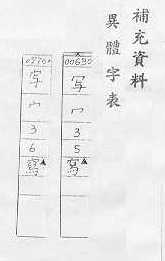 補充資料
異體字表
00690
写
冖
3
5
寫▲
写
冖
3
6
寫▲